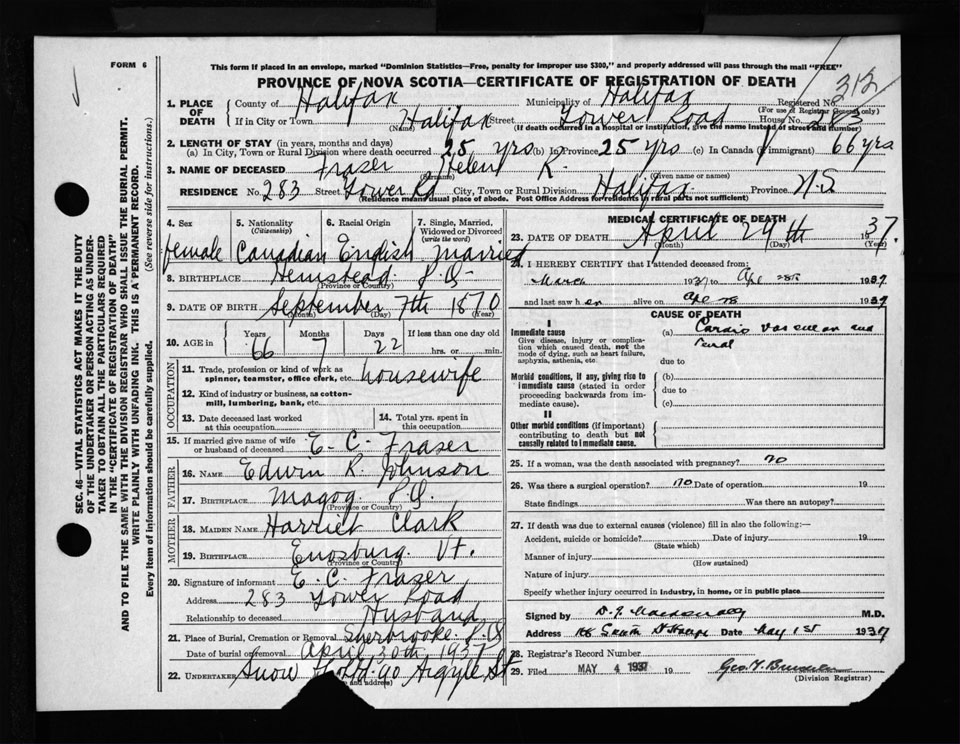 FORM 6
This form if placed in an envelope, marked "Dominion Statistics—Free, penalty for improper use $300," and properly addressed will pass through the mail "FREE"
PROVINCE OF NOVA SCOTIA—CERTIFICATE OF REGISTRATION OF DEATH
312
1. PLACE OF DEATH
County of Halifax Municipality of Halifax Registered No.
(For use of Registrar General only)
If in City or Town Halifax Street Tower Road House No. 283
(Name) (If death occurred in a hospital or institution, give the name instead of street and number)
2. LENGTH OF STAY (in years, months and days)
(a) In City, Town or Rural Division where death occurred 25 yrs (b) In Province 25 yrs (c) In Canada (if immigrant) 66 yrs
3. NAME OF DECEASED Fraser Helen R.
(Surname) (Given name or names)
RESIDENCE No. 283 Street Tower Rd City, Town or Rural Division Halifax Province N.S.
(Residence means usual place of abode. Post Office Address for residents in rural parts not sufficient)
4. Sex female
5. Nationality (Citizenship) Canadian
6. Racial Origin English
7. Single, Married, Widowed or Divorced (write the word) Married
8. BIRTHPLACE Hemstead. P.Q.
(Province or Country)
9. DATE OF BIRTH September 7th 1870
(Month) (Day) (Year)
10. AGE in Years 66 Months 7 Days 22 If less than one day old hrs. or min.
OCCUPATION
11. Trade, profession or kind of work as spinner, teamster, office clerk, etc. housewife
12. Kind of industry or business, as cotton-mill, lumbering, bank, etc.
13. Date deceased last worked at this occupation
14. Total yrs. spent in this occupation
15. If married give name of wife or husband of deceased E. C. Fraser
FATHER
16. NAME Edwin R. Johnson
17. BIRTHPLACE Magog P.Q.
(Province or Country)
MOTHER
18. MAIDEN NAME Harriet Clark
19. BIRTHPLACE Enosburg. Vt.
(Province or Country)
20. Signature of informant E. C. Fraser
Address 283 Tower Road
Relationship to deceased Husband
21. Place of Burial, Cremation or Removal Sherbrooke P.Q
Date of burial or removal April 30th, 1937
22. UNDERTAKER Snow 90 Argyle St
and address)
MEDICAL CERTIFICATE OF DEATH
23. DATE OF DEATH April 29th 1937.
(Month) (Day) (Year)
24. I HEREBY CERTIFY that I attended deceased from:
March 1937 to Apl 28th 1937
and last saw her alive on Apl 28 1937
CAUSE OF DEATH
I
Immediate cause
Give disease, injury or complication which caused death, not the mode of dying, such as heart failure, asphyxia, asthenia, etc.
(a) Cardio vascular and
renal
due to
Morbid conditions, if any, giving rise to immediate cause (stated in order proceeding backwards from immediate cause).
(b)
due to
(c)
II
Other morbid conditions (if important) contributing to death but not causally related to immediate cause.
25. If a woman, was the death associated with pregnancy? no
26. Was there a surgical operation? no Date of operation 19
State findings Was there an autopsy?
27. If death was due to external causes (violence) fill in also the following:—
Accident, suicide or homicide? Date of injury 19
(State which)
Manner of injury
(How sustained)
Nature of injury
Specify whether injury occurred in industry, in home, or in public place
Signed by M.D.
Address Date May 1st 1937
28. Registrar's Record Number
29. Filed MAY 4 1937 19
(Division Registrar)
SEC. 46—VITAL STATISTICS ACT MAKES IT THE DUTY
OF THE UNDERTAKER OR PERSON ACTING AS UNDER-
TAKER TO OBTAIN ALL THE PARTICULARS REQUIRED
IN THE "CERTIFICATE OF REGISTRATION OF DEATH"
AND TO FILE THE SAME WITH THE DIVISION REGISTRAR WHO SHALL ISSUE THE BURIAL PERMIT.
WRITE PLAINLY WITH UNFADING INK. THIS IS A PERMANENT RECORD.
Every item of information should be carefully supplied. (See reverse side for instructions.)